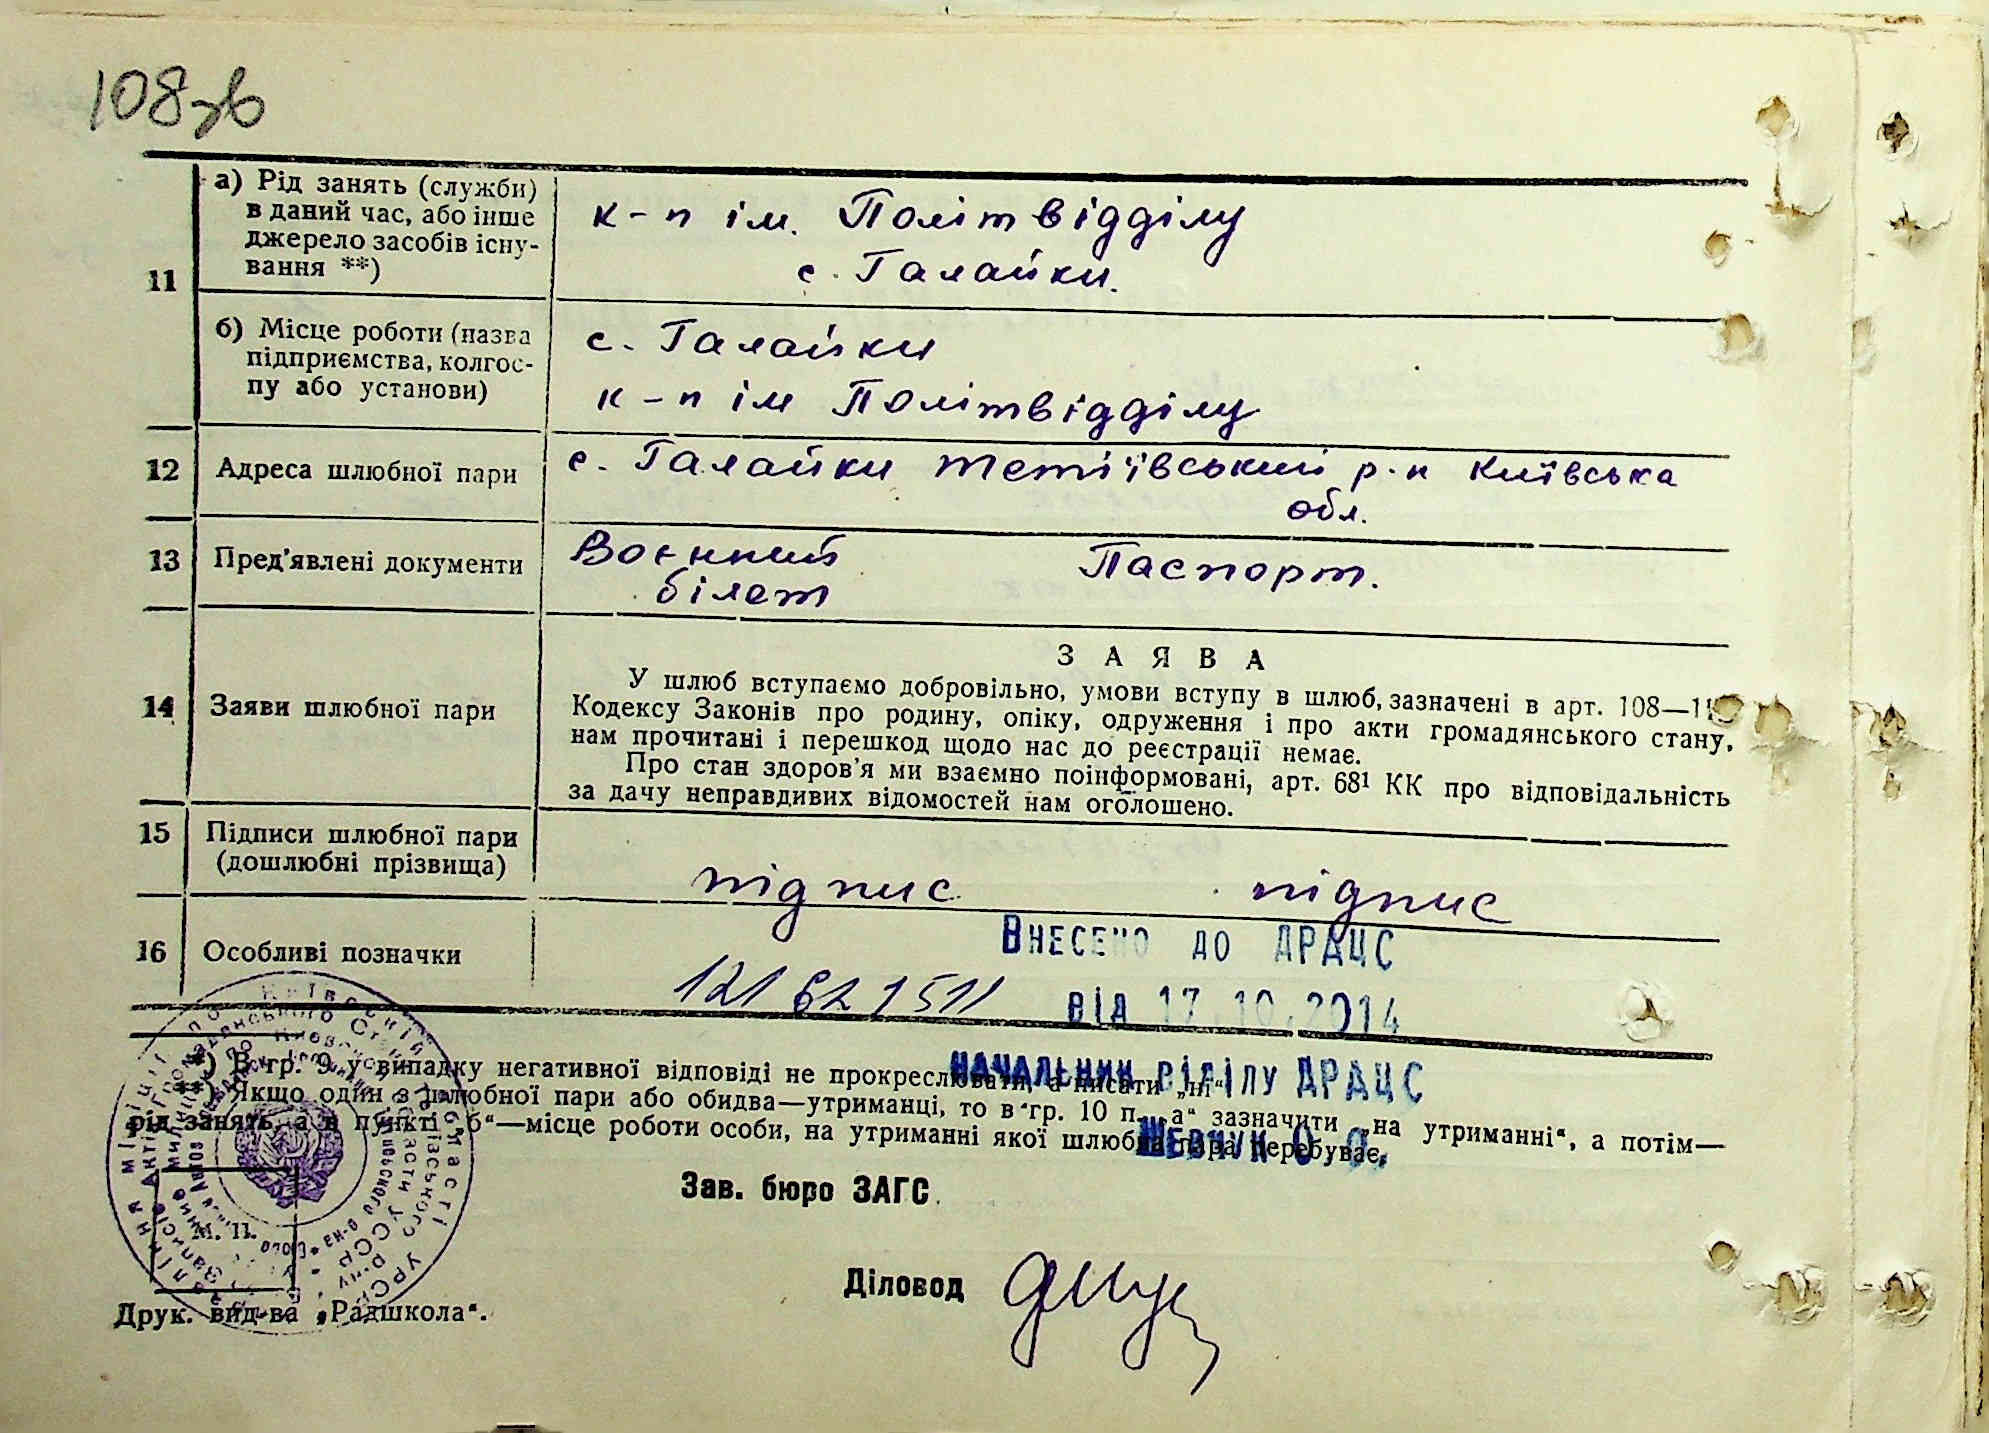 108зв
11
а) Рід занять (служби)
в даний час, або інше
джерело засобів існу-
вання **)
к-п ім. Політвідділу
с. Галайки.
б) Місце роботи (назва
підприємства, колгос-
пу або установи)
с. Галайки
к-п ім Політвідділу
12 Адреса шлюбної пари
с. Галайки Тетіївський р-н Київська
обл.
13 Пред'явлені документи
Воєнний Паспорт.
білет
14 Заяви шлюбної пари
ЗАЯВА
У шлюб вступаємо добровільно, умови вступу в шлюб, зазначені в арт. 108—11
Кодексу Законів про родину, опіку, одруження і про акти громадянського стану,
нам прочитані і перешкод щодо нас до реєстрації немає.
Про стан здоров'я ми взаємно поінформовані, арт. 68¹ КК про відповідальність
за дачу неправдивих відомостей нам оголошено.
15 Підписи шлюбної пари
(дошлюбні прізвища)
підпис підпис
16 Особливі позначки
Внесено до ДРАЦС
121 62 1511 від 17.10.2014
*) В гр. 9 у випадку негативної відповіді не прокреслювати, а писати „ні“
НАЧАЛЬНИК ВІДІЛУ ДРАЦС
**) Якщо один з шлюбної пари або обидва—утриманці, то в гр. 10 п. „а“ зазначити „на утриманні“, а потім—
рід занять, а в пункті „б“—місце роботи особи, на утриманні якої шлюбна пара перебуває.
ШЕВЧУК О. О.
Зав. бюро ЗАГС.
М. П.
Діловод
Друк. вид-ва „Радшкола“.